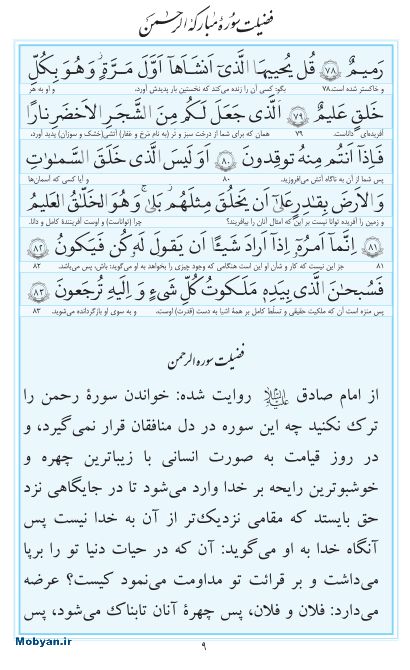 فضیلت سورهٔ مبارکهٔ الرحمن
رَمِيمٌ ﴿٧٨﴾ قُل يُحيِيهَا الَّذِىٓ اَنشَاَهَآ اَوَّلَ مَرَّةٍ وَهُوَ بِكُلِّ
و خاکستر شده است.۷۸ بگو: کسی آن را زنده می‌کند که نخستین بار پدیدش آورد، و او به هر
خَلقٍ عَلِيمٌ ﴿٧٩﴾ اَلَّذِى جَعَلَ لَكُم مِنَ الشَّجَرِ الاَخضَرِ نارًا
آفریده‌ای داناست. ۷۹ همان که برای شما از درخت سبز و تر (به نام مَرخ و عَفار) آتشی (خشک و سوزان) پدید آورد،
فَاِذَآ اَنتُم مِنهُ تُوقِدونَ ﴿٨٠﴾ اَوَ لَيسَ الَّذِى خَلَقَ السَّمٰوٰتِ
پس شما از آن به ناگاه آتش می‌افروزید. ۸۰ و آیا کسی که آسمان‌ها
وَالاَرضَ بِقٰدِرٍ عَلىٰٓ اَن يَخلُقَ مِثلَهُم بَلىٰ وَهُوَ الخَلّٰقُ العَلِيمُ
و زمین را آفریده توانا نیست بر این که امثال آنان را بیافریند؟ چرا (تواناست) و اوست آفرینندهٔ کامل و دانا.
﴿٨١﴾ اِنَّمَآ اَمرُهُۥٓ اِذَآ اَرادَ شَيـًٔا اَن يَقولَ لَهُۥ كُن فَيَكونُ ﴿٨٢﴾
۸۱ جز این نیست که کار و شأن او این است هنگامی که وجود چیزی را بخواهد به او می‌گوید: باش، پس می‌باشد. ۸۲
فَسُبحٰنَ الَّذِى بِيَدِهٖ مَلَكوتُ كُلِّ شَىءٍ وَ اِلَيهِ تُرجَعونَ ﴿٨٣﴾
پس منزه است آن که ملکیت حقیقی و تسلّط کامل بر همهٔ اشیا به دست (قدرت) اوست. و به سوی او بازگردانده می‌شوید. ۸۳
فضیلت سوره الرحمن
از امام صادق علیه‌السلام روایت شده: خواندن سورهٔ رحمن را
ترک نکنید چه این سوره در دل منافقان قرار نمی‌گیرد، و
در روز قیامت به صورت انسانی با زیباترین چهره و
خوشبوترین رایحه بر خدا وارد می‌شود تا در جایگاهی نزد
حق بایستد که مقامی نزدیک‌تر از آن به خدا نیست پس
آنگاه خدا به او می‌گوید: آن که در حیات دنیا تو را برپا
می‌داشت و بر قرائت تو مداومت می‌نمود کیست؟ عرضه
می‌دارد: فلان و فلان، پس چهرهٔ آنان تابناک می‌شود، پس
۹
Mobyan.ir